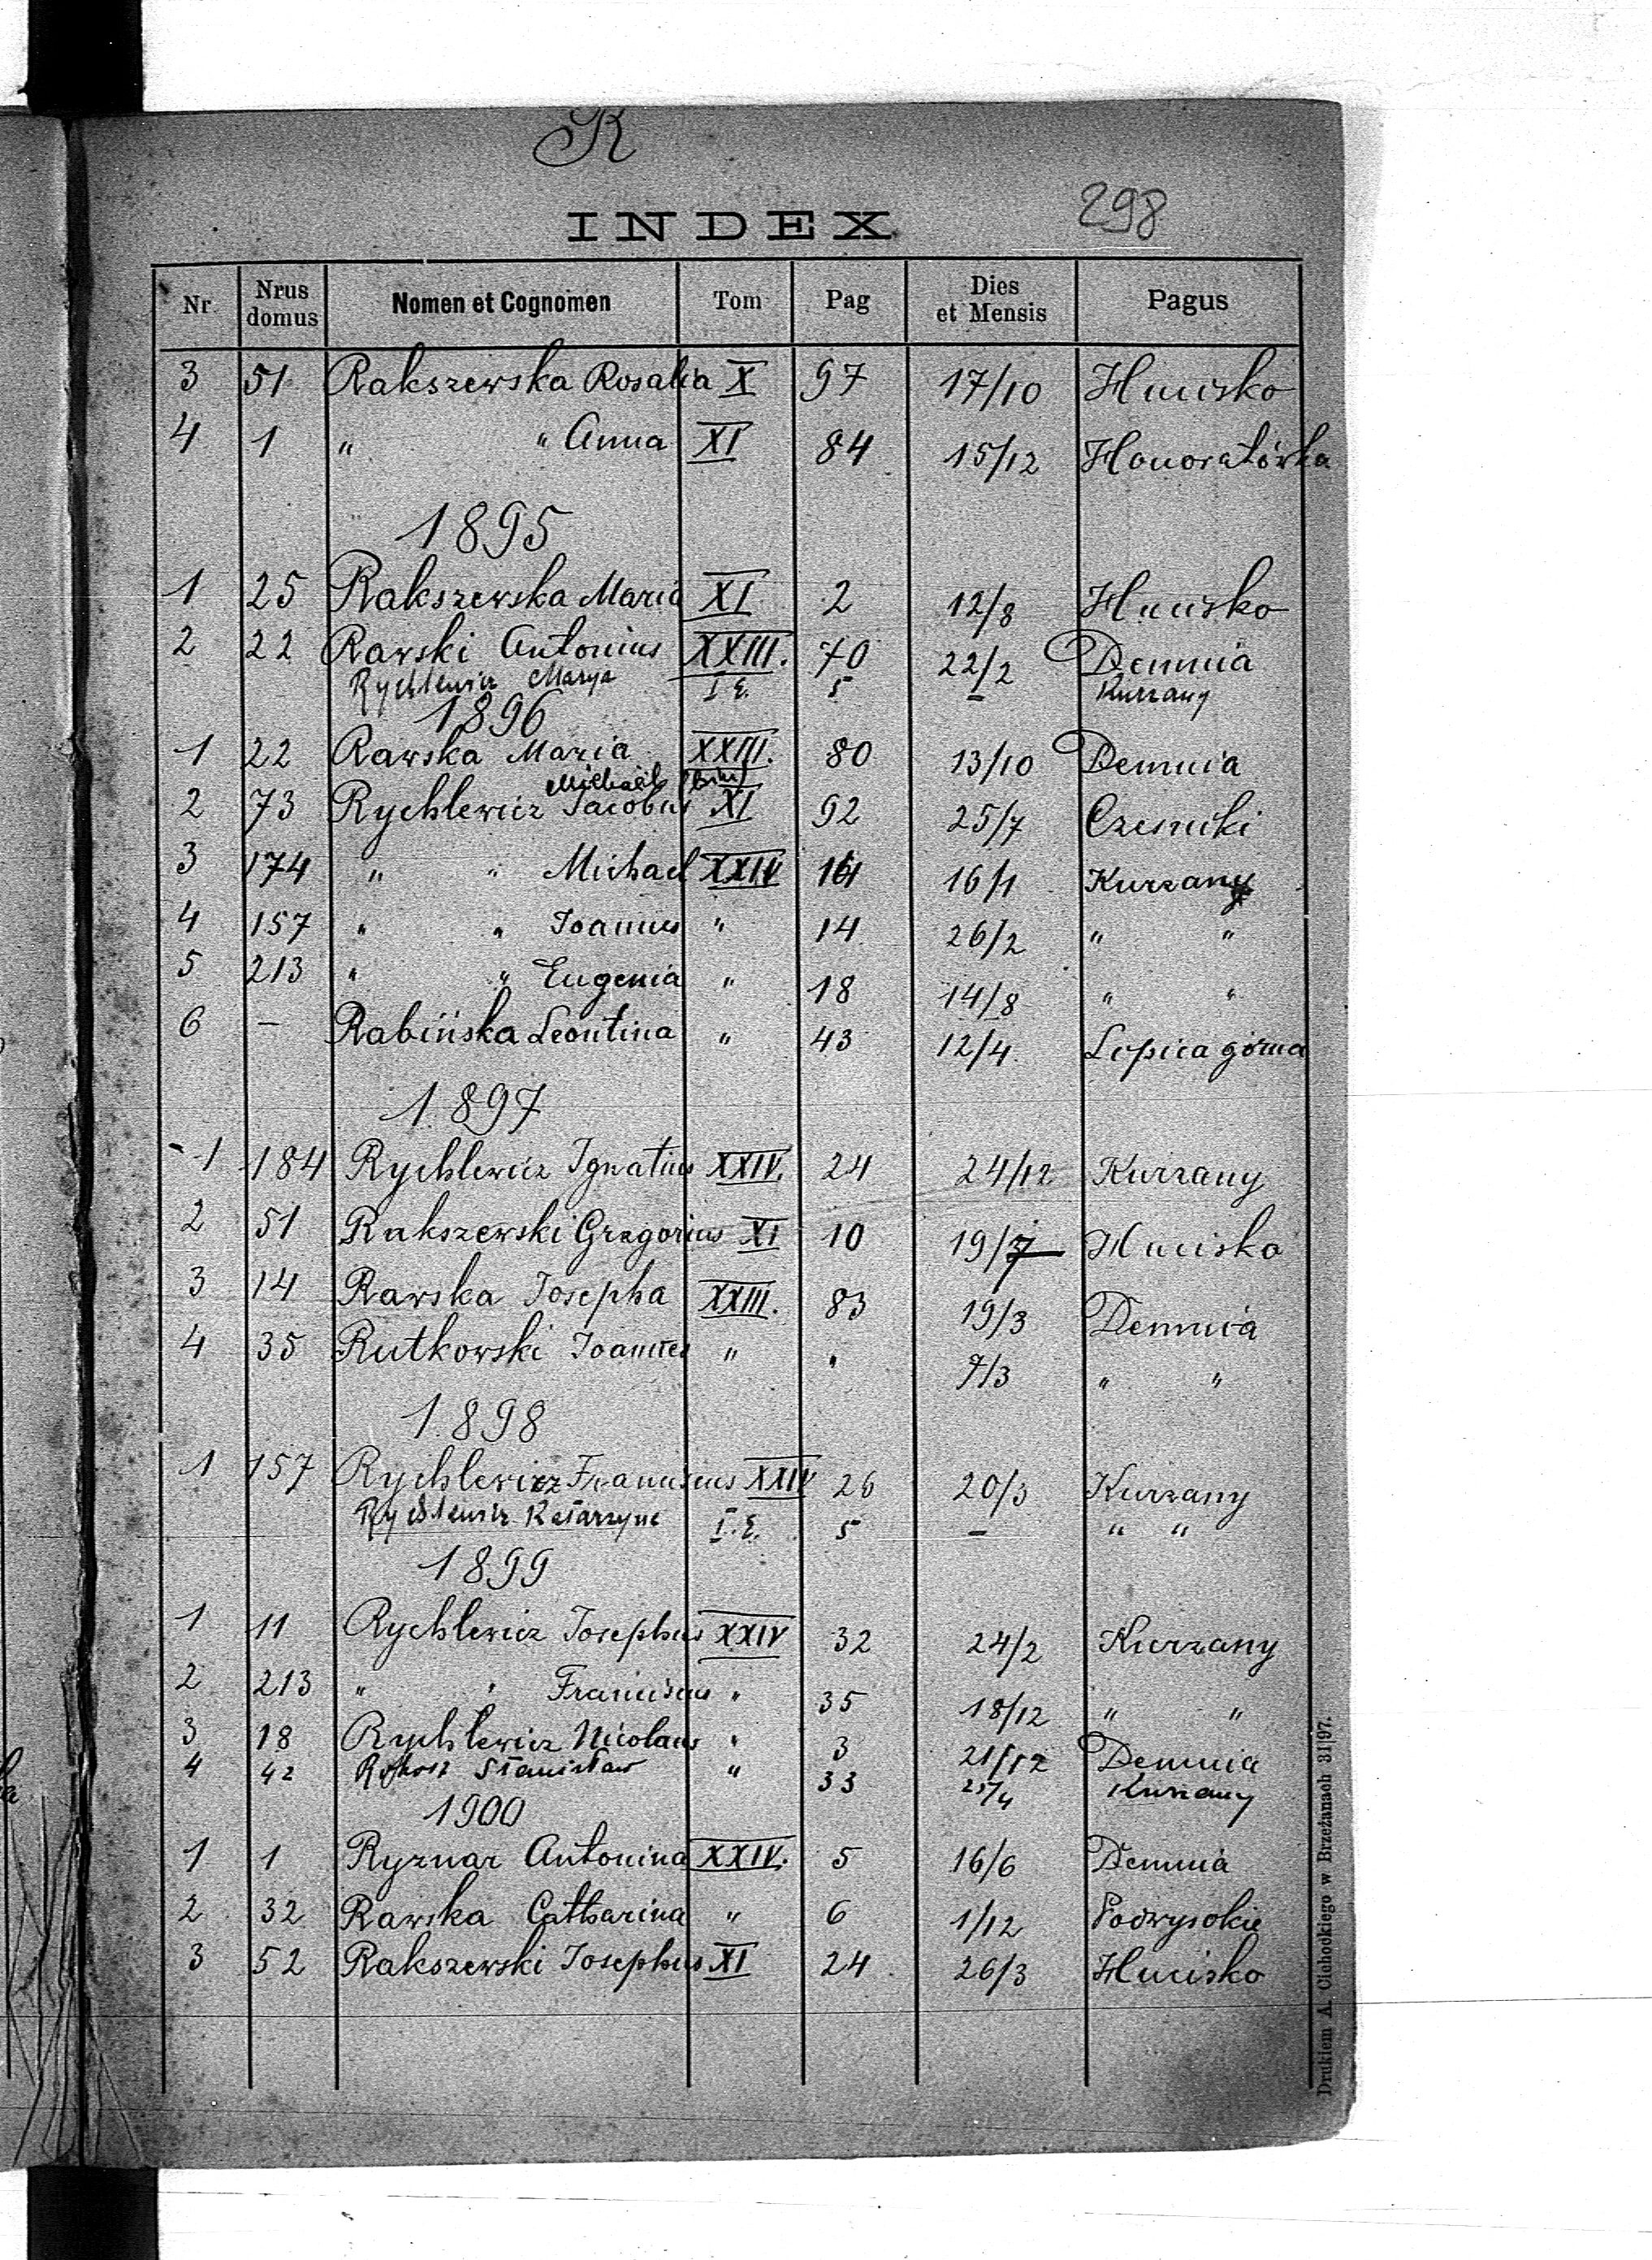 R
INDEX 298
Nr Nrus domus Nomen et Cognomen Tom Pag Dies et Mensis Pagus
3 51 Rakszewska Rosalia X 97 17/10 Hucisko
4 1 " " Anna XI 84 15/12 Honoratówka
1895
1 25 Rakszewska Maria XI 2 12/8 Hucisko
2 22 Rawski Antonius XXIII. 70 22/2 Demnia
Rychlewicz Marya I E. 5 – Kurzany
1896
1 22 Rawska Maria XXIII. 80 13/10 Demnia
Michaël (bin)
2 73 Rychlewicz Jacobus XI 92 25/7 Czesniki
3 174 " " Michael XXIV 14 16/1 Kurzany
4 157 " " Joannes " 14 26/2 " "
5 213 " " Eugenia " 18 14/8 " "
6 – Rabińska Leontina " 43 12/4 Lipica górna
1897
1 184 Rychlewicz Ignatius XXIV. 24 24/12 Kurzany
2 51 Rakszewski Gregorius XI 10 19/7 Hucisko
3 14 Rawska Josepha XXIII. 83 19/3 Demnia
4 35 Rutkowski Joannes " " 7/3 " "
1898
1 157 Rychlewicz Franciscus XXIV 26 20/3 Kurzany
Rychlewicz Katarzyna I. E. 5 – " "
1899
1 11 Rychlewicz Josephus XXIV 32 24/2 Kurzany
2 213 " " Franciscus " 35 18/12 " "
3 18 Rychlewicz Nicolaus " 3 21/12 Demnia
4 42 Stanisław " 33 25/4 Kurzany
1900
1 1 Ryznar Antonina XXIV. 5 16/6 Demnia
2 32 Rawska Catharina " 6 1/12 Podwysokie
3 52 Rakszewski Josephus XI 24 26/3 Hucisko
Drukiem A. Cichockiego w Brzeżanach 31|97.